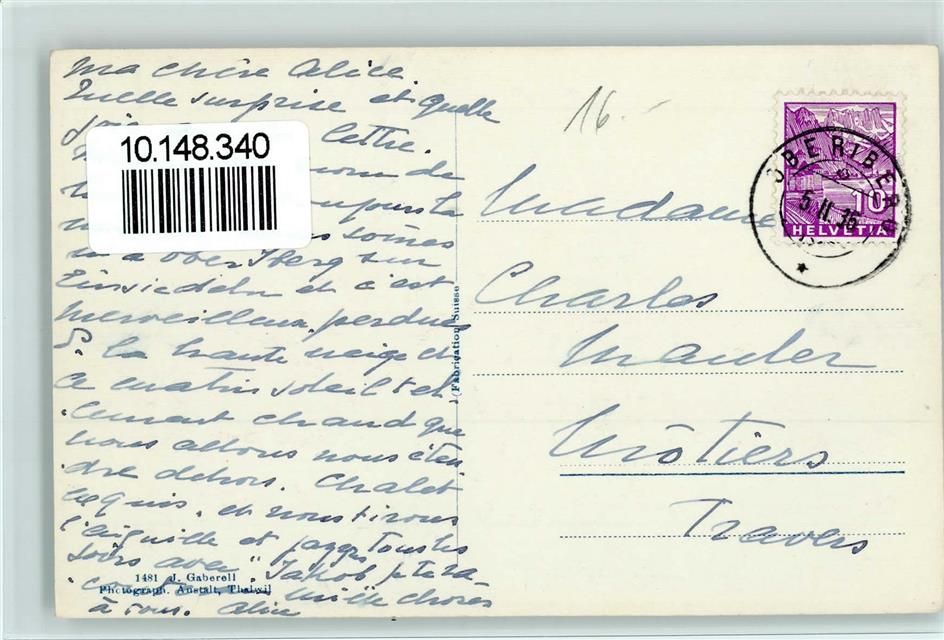 ma chère Alice
Quelle surprise et quelle
lettre.
10.148.340
de
sommes
à ober Iberg sur
Einsiedeln et c'est
merveilleux, perdues
la haute neige et
ce matin soleil tel-
lement chaud que
nous allons nous éten
dre dehors. Chalet
exquis, et nous tirons
l'aiguille et tous les
soirs avec
mille choses
à vous. Alice
1481 J. Gaberell
Photograph. Anstalt, Thalwil
(Fabrication Suisse)
16.-
OBERIBERG
5.II.
10
HELVETIA
Madame
Charles
Mauler
Môtiers
Travers